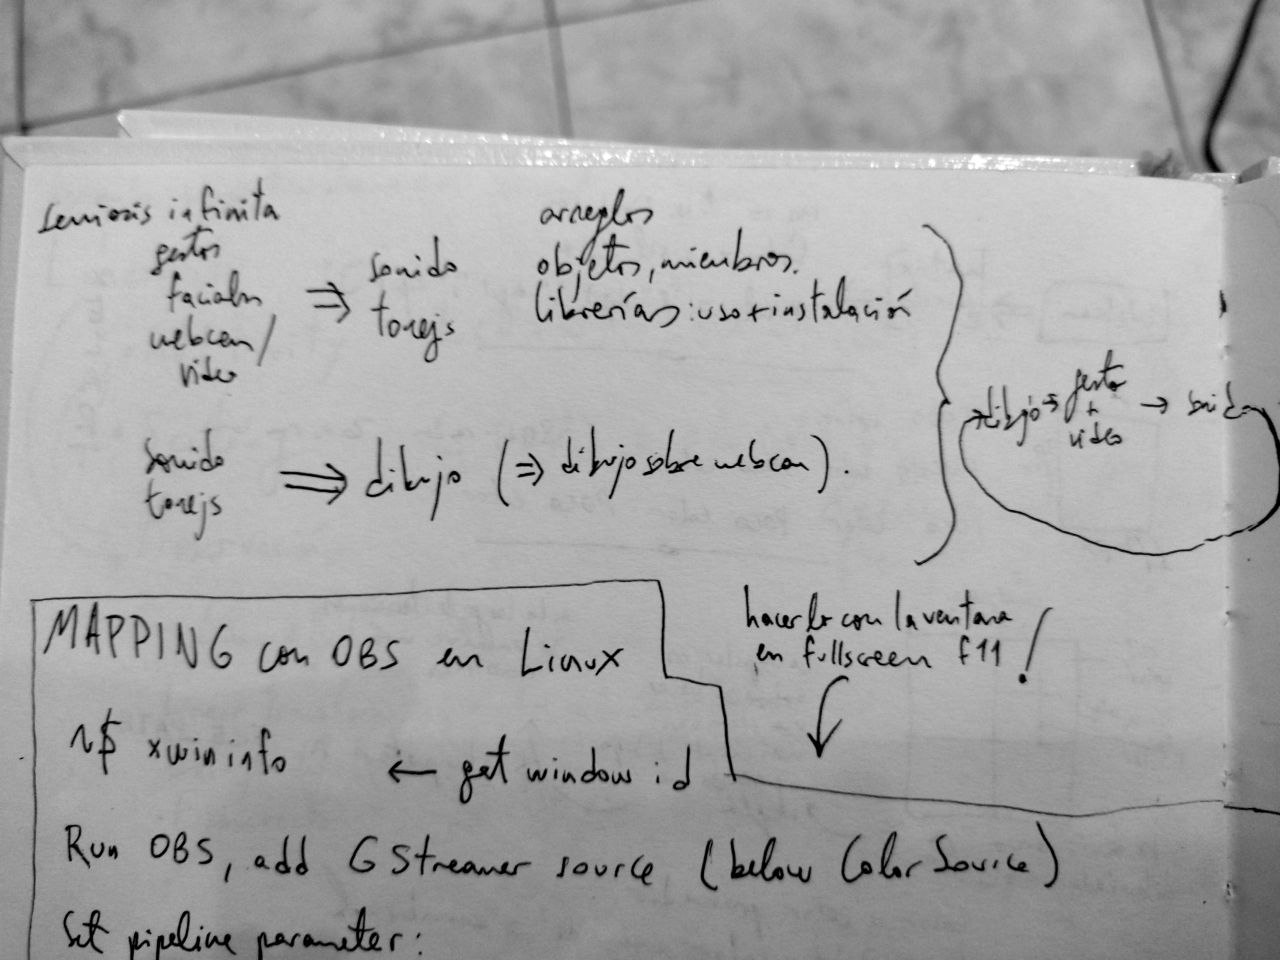 semiosis infinita
gestos
faciales
webcam/
video
⇒ sonido
tonejs
arreglos
objetos, miembros.
librerías: uso + instalación
sonido
tonejs
⇒ dibujo (⇒ dibujo sobre webcam).
→ dibujo → gesto
+
video
→ sonido
MAPPING con OBS en Linux
hacerlo con la ventana
en fullscreen f11!
~$ xwininfo ← get window id
Run OBS, add GStreamer source (below Color Source)
Set pipeline parameter: